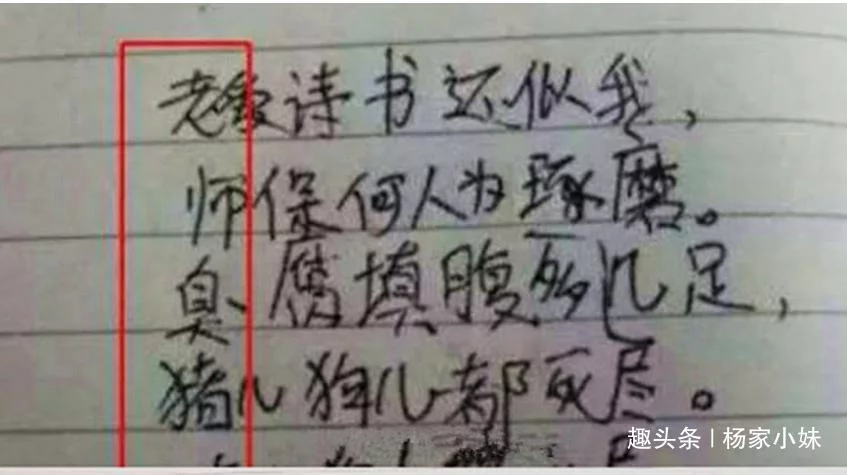 老爱诗书还似我,
师保何人为琢磨。
臭腐填腹多几足,
猪儿狗儿都死尽。
趣头条 | 杨家小妹